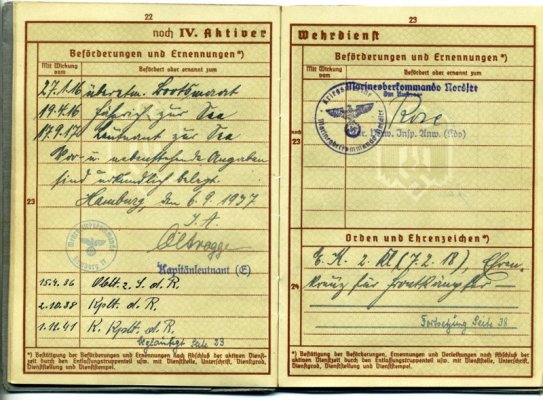 22
noch IV. Aktiver
Beförderungen und Ernennungen*)
Mit Wirkung vom
Befördert oder ernannt zum
27.1.16 überzm. Bootsmaat
19.4.16 Fähnrich zur See
17.9.17 Leutnant zur See
Vor- u. nebenstehende Angaben
sind urkundlich belegt.
23
Hamburg, 6.9.1937
I. A.
Oltrogge
Kapitänleutnant (E)
15.9.36 Oblt. z. S. d. R.
2.10.38 Kplt. d. R.
1.11.41 K. Kpt. d. R.
Beglaubigt Seite 33
*) Bestätigung der Beförderungen und Ernennungen nach Abschluß der aktiven Dienst-
zeit durch den Entlassungstruppenteil usw. mit Dienststelle, Unterschrift, Dienstgrad,
Dienststellung und Dienststempel.
23
Wehrdienst
Beförderungen und Ernennungen*)
Mit Wirkung vom
Befördert oder ernannt zum
Marineoberkommando Nordsee
Im Auftrag
Rose
Insp. Anw. (Kdo)
noch
23
Orden und Ehrenzeichen*)
E. K. 2. Kl (7.2.18), Ehren-
24
kreuz für Frontkämpfer —
Fortsetzung Seite 38
*) Bestätigung der Beförderungen, Ernennungen und Verleihungen nach Abschluß der
aktiven Dienstzeit durch den Entlassungstruppenteil usw. mit Dienststelle, Unterschrift,
Dienstgrad, Dienststellung und Dienststempel.